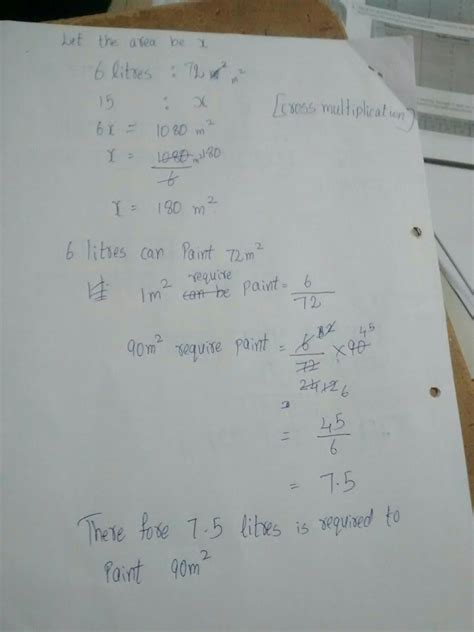 Let the area be x
6 litres : 72 m² m²
15 : x
[cross multiplication]
6x = 1080 m²
x = 1080 m² 180
6
x = 180 m²
6 litres can Paint 72m²
require
1m² can be paint = 6
72
90m² require paint = 6 × 90 45
72
6
= 45
6
= 7.5
There fore 7.5 litres is required to
Paint 90m²